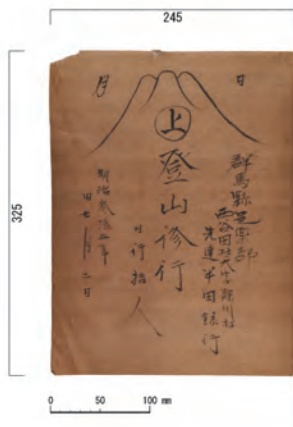 245
325
日
月
群馬縣邑楽郡
西谷田村大字除川村
先達半田
行
上
登山修行
同行拾人
明治参拾五年
旧七月二日
0 50 100 mm